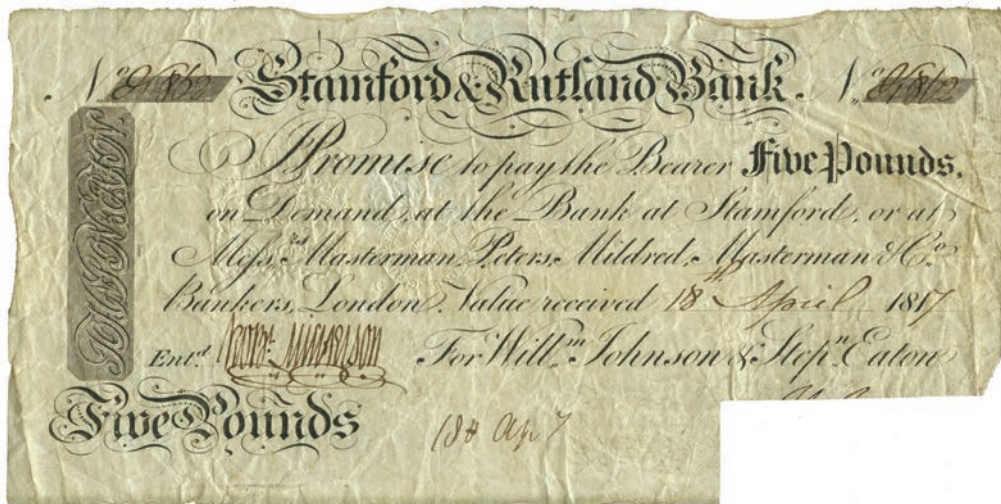 Stamford & Rutland Bank.
I Promise to pay the Bearer Five Pounds.
on Demand, at the Bank at Stamford, or at
Meſsrs. Masterman, Peters, Mildred, Masterman & Co.
Bankers, London. Value received 18th April 1817
Entd.
For Willm. Johnson & Stepn. Eaton
Five Pounds